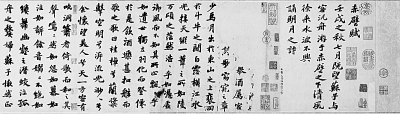 赤壁賦
壬戌之秋七月既望蘇子與
客泛舟游于赤壁之下清風
徐來水波不興
舉酒屬客
誦明月之詩
歌窈窕之章
少焉月出於東山之上裴回
於斗牛之間白露橫江水
光接天縱一葦之所如陵
萬頃之茫然浩浩乎如馮虛
御風而不知其所止飄飄乎
如遺世獨立羽化而登僊
於是飲酒樂甚扣舷而
歌之歌曰桂棹兮蘭槳
擊空明兮泝流光渺渺兮
余懷望美人兮天一方客有
吹洞簫者倚歌而和之其
聲嗚嗚然如怨如慕如
泣如訴餘音嫋嫋不絕如
縷舞幽壑之潛蛟泣孤
舟之嫠婦蘇子愀然正